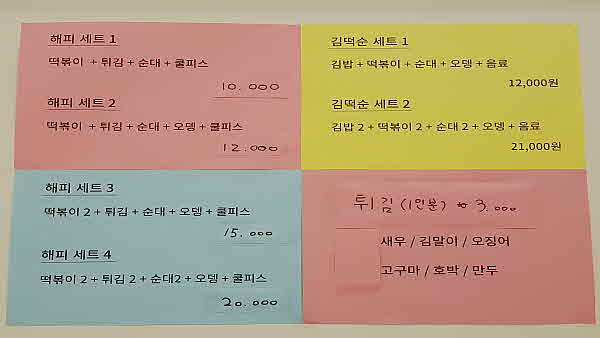 해피 세트 1
떡볶이 + 튀김 + 순대 + 쿨피스
10.000
해피 세트 2
떡볶이 + 튀김 + 순대 + 오뎅 + 쿨피스
12.000
김떡순 세트 1
김밥 + 떡볶이 + 순대 + 오뎅 + 음료
12,000원
김떡순 세트 2
김밥 2 + 떡볶이 2 + 순대 2 + 오뎅 + 음료
21,000원
해피 세트 3
떡볶이 2 + 튀김 + 순대 + 오뎅 + 쿨피스
15.000
해피 세트 4
떡볶이 2 + 튀김 2 + 순대2 + 오뎅 + 쿨피스
20.000
튀김 (1인분) 3.000
새우 / 김말이 / 오징어
고구마 / 호박 / 만두